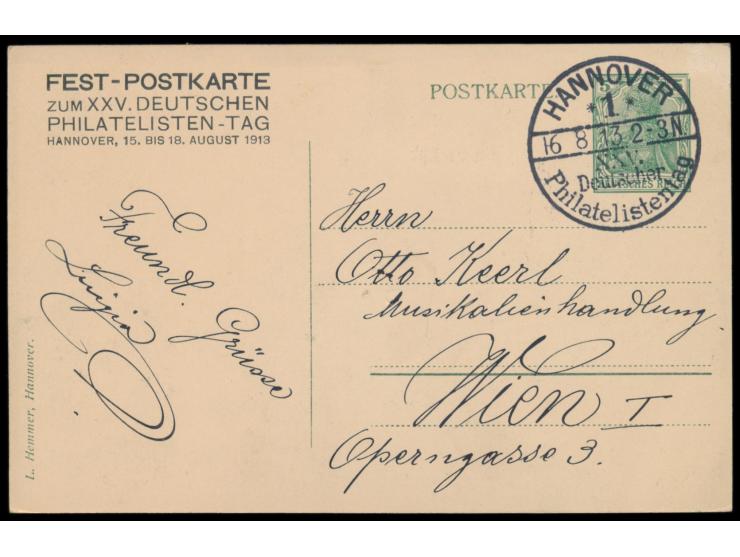 FEST-POSTKARTE
ZUM XXV. DEUTSCHEN
PHILATELISTEN-TAG
HANNOVER, 15. BIS 18. AUGUST 1913
POSTKARTE
5
HANNOVER
*1*
16 8 13 2-3N
XXV.
Deutscher
Philatelistentag
DEUTSCHES REICH
Freundl. Grüsse
Luigia
Herrn
Otto Keerl
Musikalienhandlung.
Wien I
Operngasse 3.
L. Hemmer, Hannover.